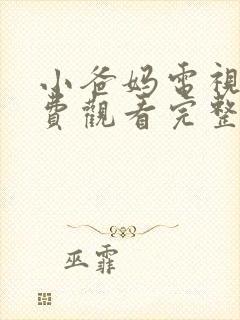 小爸妈電視
費觀看完整
巫霏